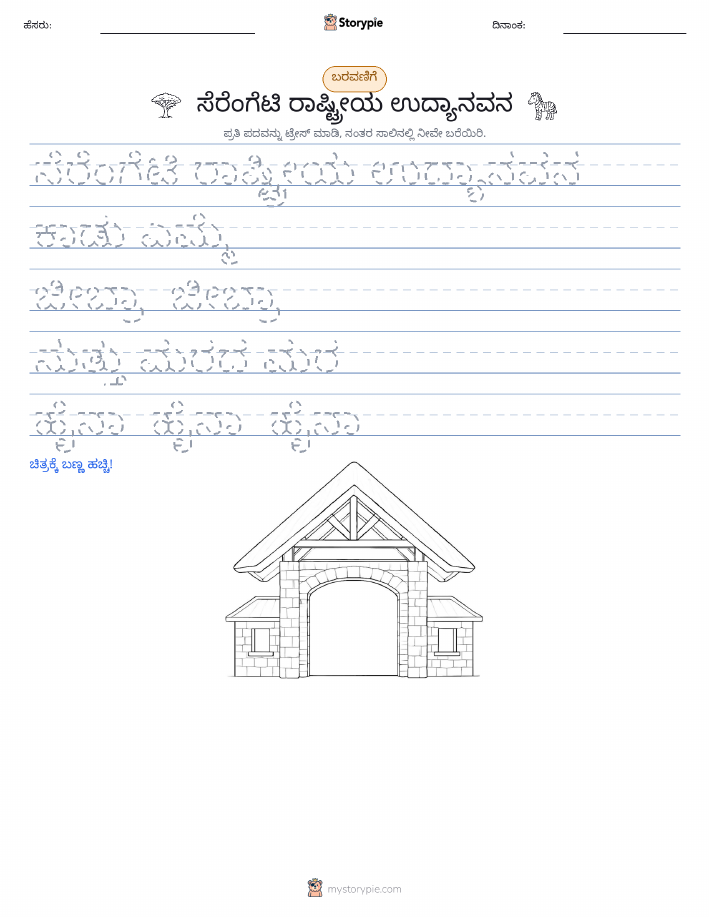 ಹೆಸರು:
Storypie
ದಿನಾಂಕ:
ಬರವಣಿಗೆ
ಸೆರೆಂಗೆಟಿ ರಾಷ್ಟ್ರೀಯ ಉದ್ಯಾನವನ
ಪ್ರತಿ ಪದವನ್ನು ಟ್ರೇಸ್ ಮಾಡಿ, ನಂತರ ಸಾಲಿನಲ್ಲಿ ನೀವೇ ಬರೆಯಿರಿ.
ಸೆರೆಂಗೆಟಿ ರಾಷ್ಟ್ರೀಯ ಉದ್ಯಾನವನ
ಕಾಡು ಎಮ್ಮೆ
ಜೀಬ್ರಾ ಜೀಬ್ರಾ
ಮತ್ತು ಮರದ ಮರ
ಹೈನಾ ಹೈನಾ ಹೈನಾ
ಚಿತ್ರಕ್ಕೆ ಬಣ್ಣ ಹಚ್ಚಿ!
mystorypie.com